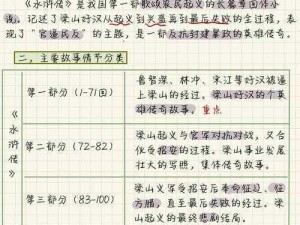 《水浒传》是我国第一部歌颂农民起义的长篇章回体小
说，记述了梁山好汉从起义到兴盛再到最后失败的全过程，表
现了“官逼民反”的主题，是一部反抗封建暴政的英雄传奇。
二、主要故事情节分类
《水浒传》
第一部分（1-71回）
鲁智深、林冲、宋江等好汉被逼
上梁山的经过。梁山好汉的个人英
雄传奇故事。重点
第二部分（72-82）
梁山起义与官军对抗对战，又合
伙受招安的过程。梁山事业发展
壮大的写照，集体传奇故事。
第三部分（83-100）
梁山义军受招安后奉命征辽、征
方腊，直至最后失败的经过。梁
山起义的最终悲剧结局。